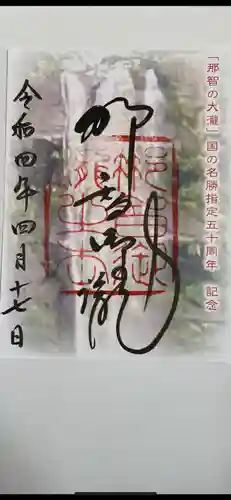 「那智の大瀧」国の名勝指定五十周年 記念
那智御瀧
令和四年四月十七日